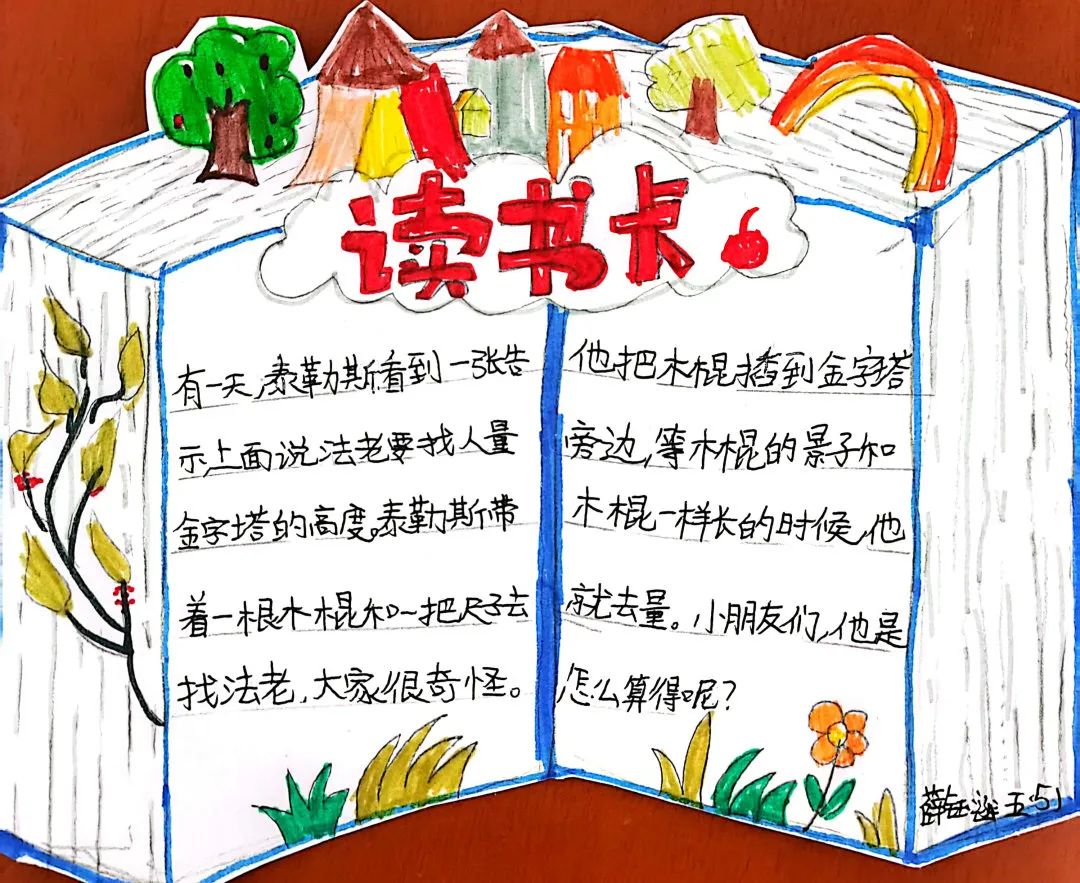 读书卡
有一天,泰勒斯看到一张告
示,上面说法老要找人量
金字塔的高度。泰勒斯带
着一根木棍和一把尺子去
找法老,大家很奇怪。
他把木棍插到金字塔
旁边,等木棍的影子和
木棍一样长的时候,他
就去量。小朋友们,他是
怎么算得呢?
五